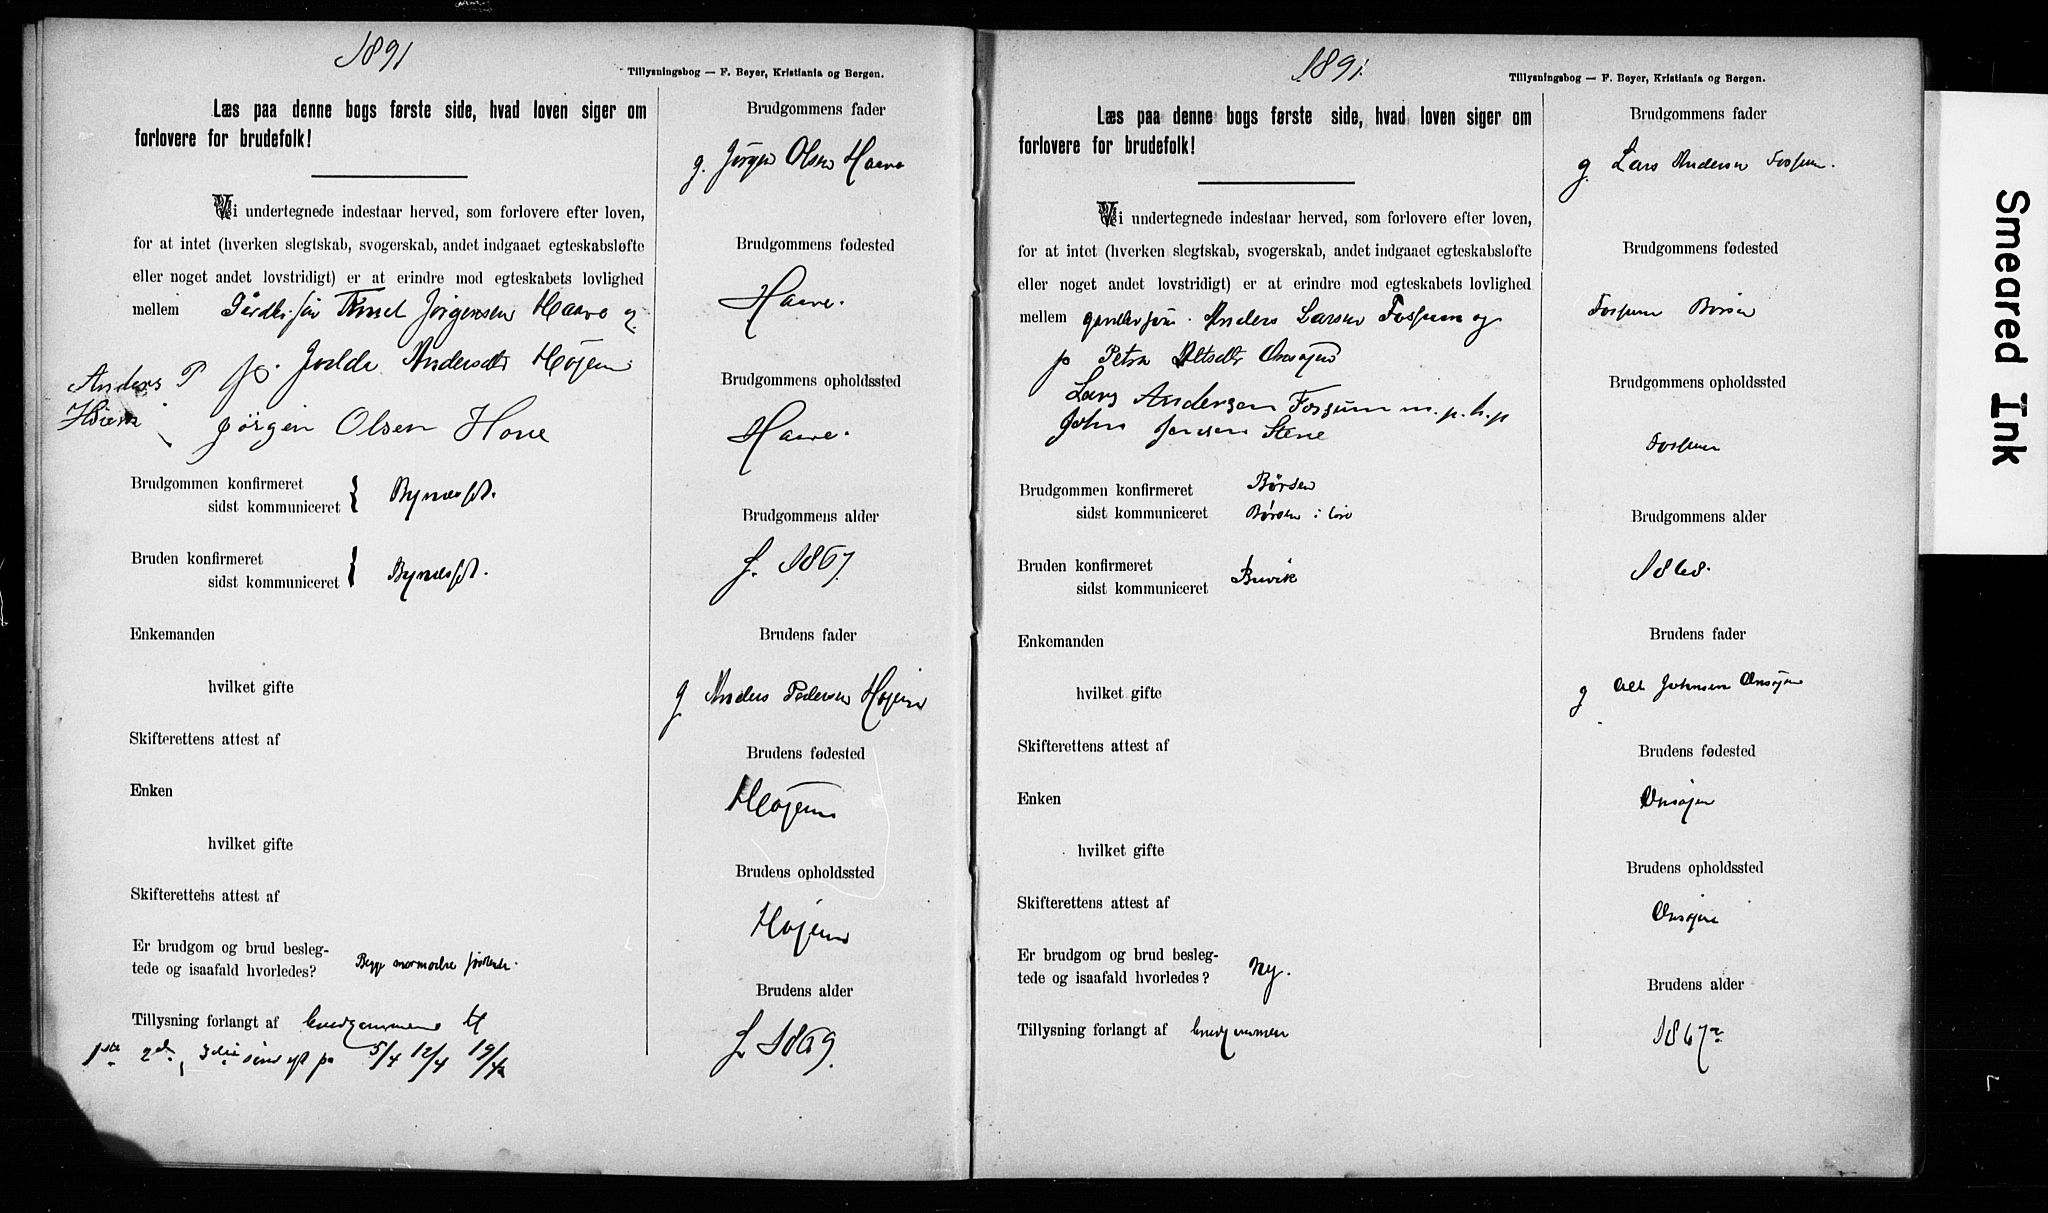 1891
Tillysningsbog — F. Beyer, Kristiania og Bergen.
Læs paa denne bogs første side, hvad loven siger om
forlovere for brudefolk!
Vi undertegnede indestaar herved, som forlovere efter loven,
for at intet (hverken slegtskab, svogerskab, andet indgaaet egteskabsløfte
eller noget andet lovstridigt) er at erindre mod egteskabets lovlighed
mellem Knud Jørgensen Haave og
p. Andersdtr Højem
Anders P
Høiem
Jørgen Olsen Hove
Brudgommen konfirmeret
sidst kommuniceret } Bynesset.
Bruden konfirmeret
sidst kommuniceret } Bynesset.
Enkemanden
hvilket gifte
Skifterettens attest af
Enken
hvilket gifte
Skifterettens attest af
Er brudgom og brud besleg-
tede og isaafald hvorledes?
Tillysning forlangt af brudgommen
1ste 2den 3die 5/4 12/4 19/4
Brudgommens fader
g. Jørgen Olsen Haave
Brudgommens fødested
Haave.
Brudgommens opholdssted
Haave.
Brudgommens alder
f. 1867.
Brudens fader
g Anders Pedersen Højem
Brudens fødested
Højem
Brudens opholdssted
Højem
Brudens alder
f. 1869.
1891.
Tillysningsbog — F. Beyer, Kristiania og Bergen.
Læs paa denne bogs første side, hvad loven siger om
forlovere for brudefolk!
Vi undertegnede indestaar herved, som forlovere efter loven,
for at intet (hverken slegtskab, svogerskab, andet indgaaet egteskabsløfte
eller noget andet lovstridigt) er at erindre mod egteskabets lovlighed
mellem Anders Larsen Fossum og
p Petra Onsøjen
Lars Andersen Fossum m.p.h.p
John Jensen Stene
Brudgommen konfirmeret Børsen
sidst kommuniceret Børsen i
Bruden konfirmeret Buvik
sidst kommuniceret
Enkemanden
hvilket gifte
Skifterettens attest af
Enken
hvilket gifte
Skifterettens attest af
Er brudgom og brud besleg-
tede og isaafald hvorledes? Nej.
Tillysning forlangt af brudgommen
Brudgommens fader
g. Lars Andersen Fossum.
Brudgommens fødested
Fossum Børsen
Brudgommens opholdssted
Fossum
Brudgommens alder
1868.
Brudens fader
g Johnsen Onsøjen
Brudens fødested
Onsøjen
Brudens opholdssted
Onsøjen
Brudens alder
1867
Smeared Ink